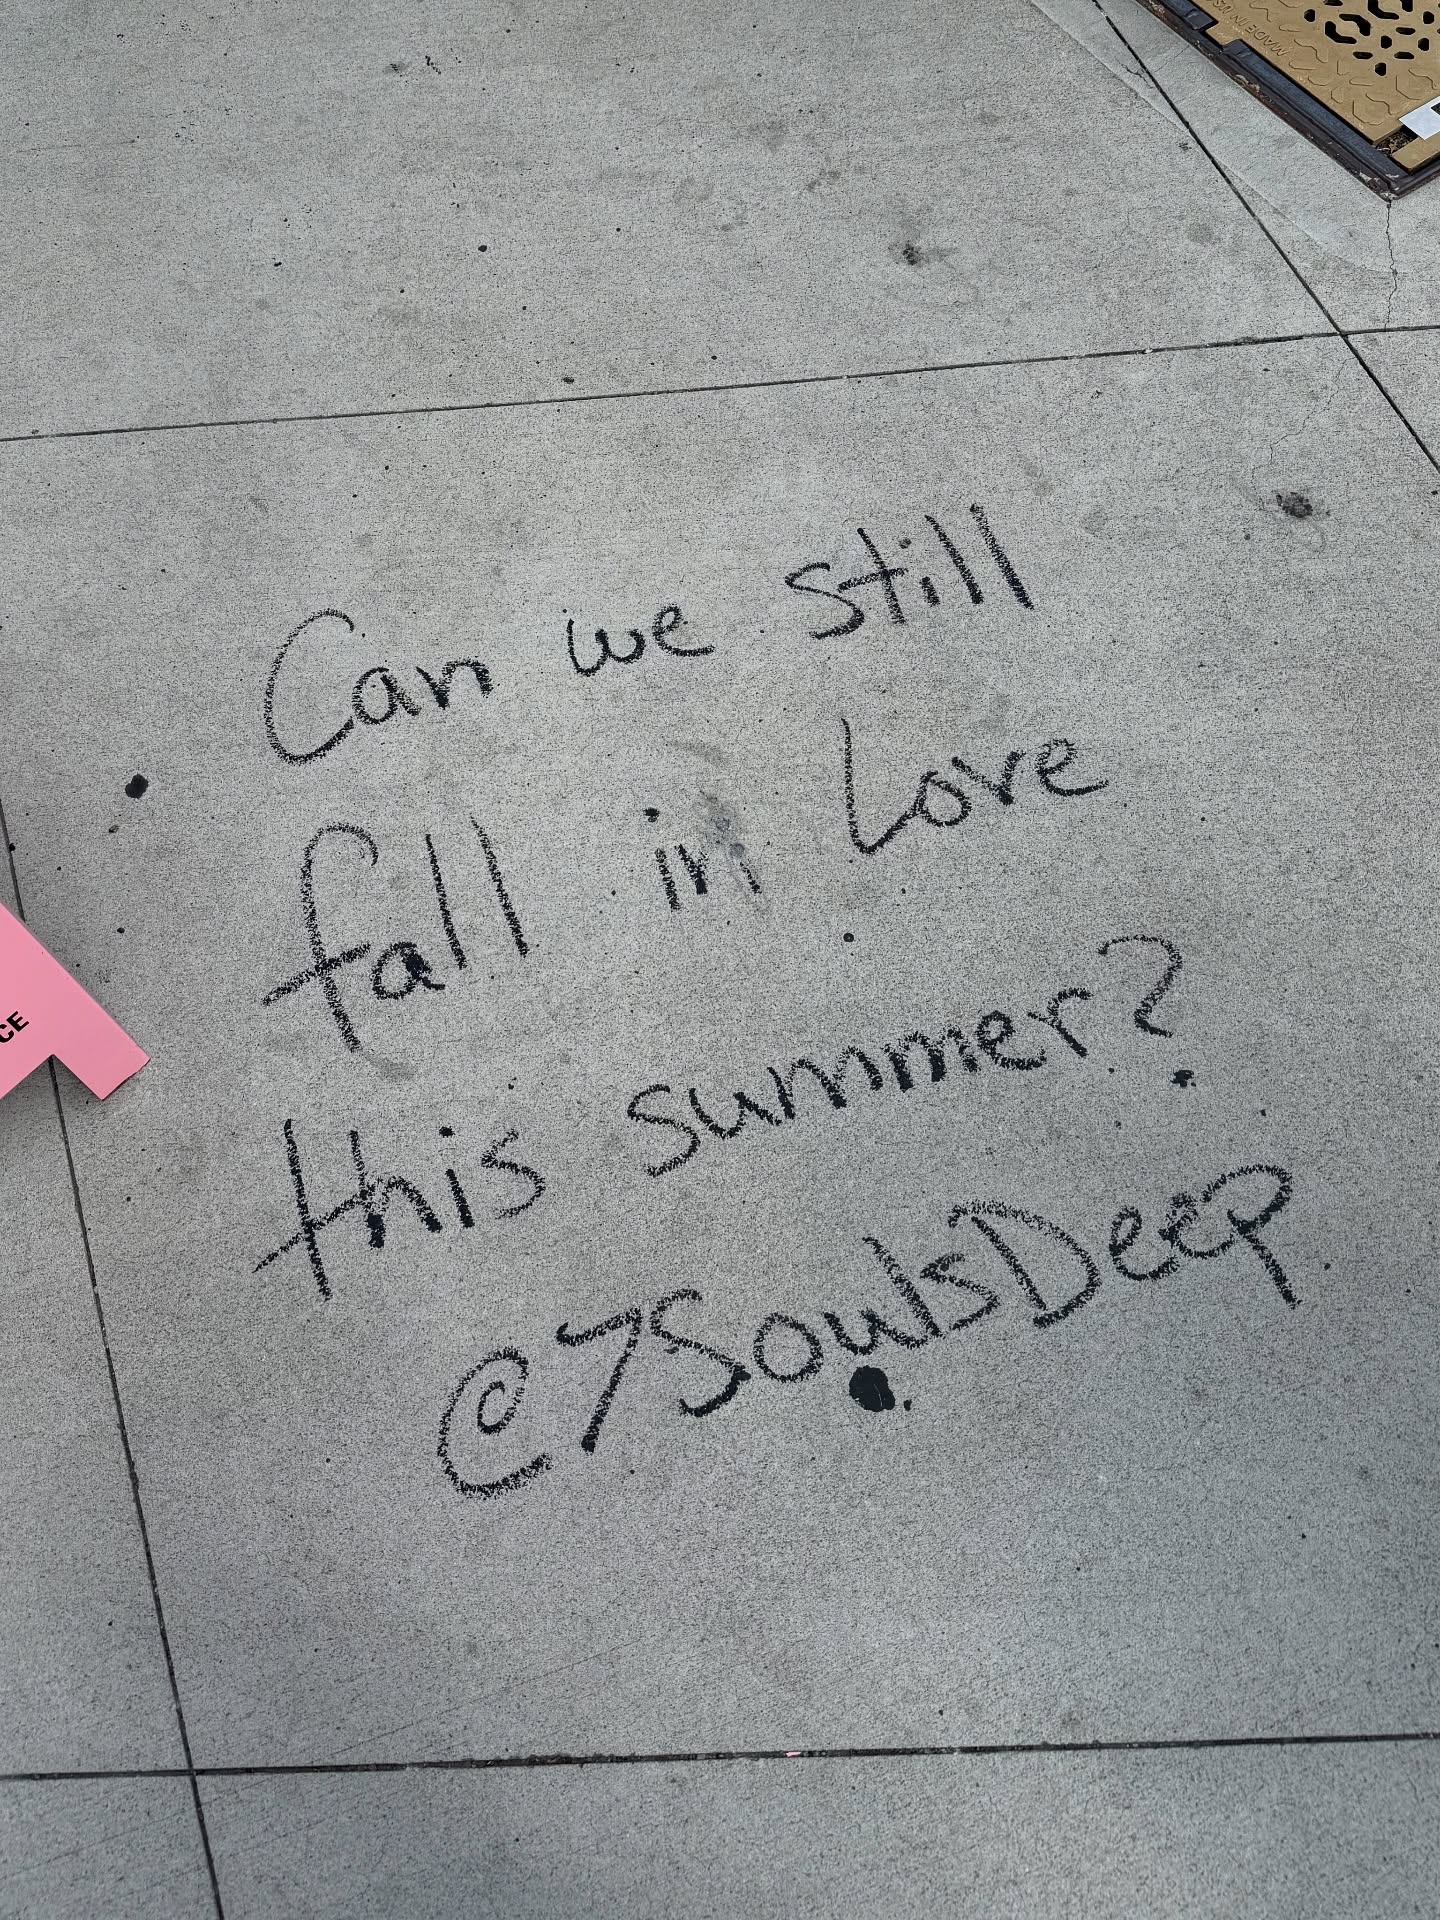 MADE IN US
Can we still
fall in Love
CE
this summer?
@7SoulsDeep